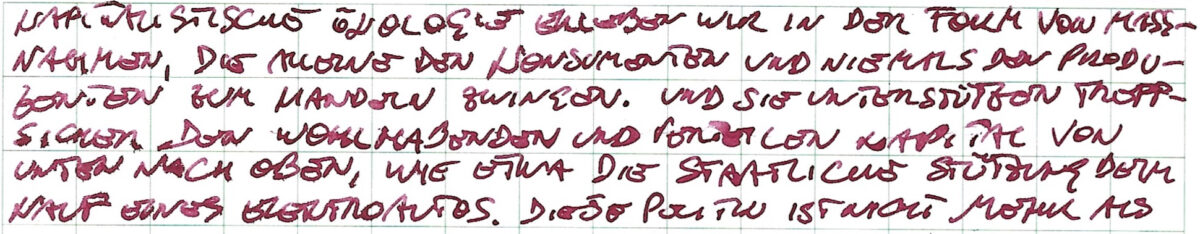 KAPITALISTISCHE ÖKOLOGIE ERLEBEN WIR IN DER FORM VON MASS-
NAHMEN, DIE ALLEINE DEN KONSUMENTEN UND NIEMALS DEN PRODU-
ZENTEN ZUM HANDELN ZWINGEN. UND SIE UNTERSTÜTZEN TREFF-
SICHER DEN WOHLHABENDEN UND VERTEILEN KAPITAL VON
UNTEN NACH OBEN, WIE ETWA DIE STAATLICHE STÜTZUNG BEIM
KAUF EINES ELEKTROAUTOS. DIESE POLITIK IST NICHT MEHR ALS